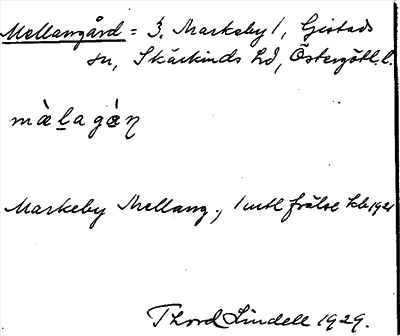 Mellangård = 3. Markeby 1, Gistads
sn, Skärkinds hd, Östergötl. l.
mὰḻagάŋ
Markeby Mellang., 1 mtl frälse Jb 1921
Thord Lindell 1929.